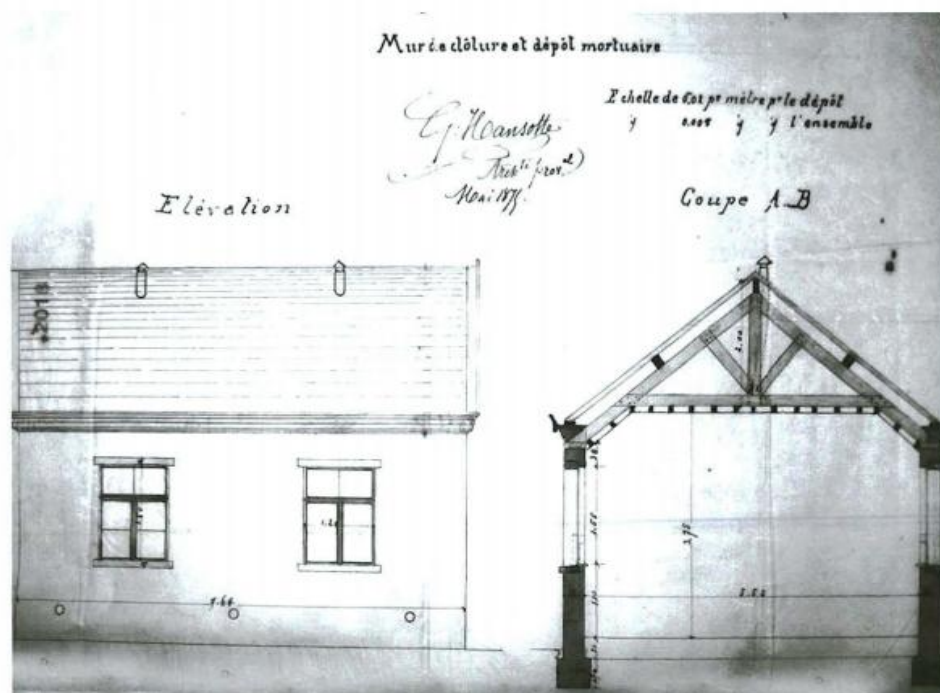 Mur de clôture et dépôt mortuaire
Echelle de 0,02 pr mètre pr le dépôt
" 0.005 " " l'ensemble
G. Hansotte
Archte prov.al
Mai 1875.
Elévation
Coupe A_B
2018
1.20
7.60
2.00
1.55
3.75
5.50